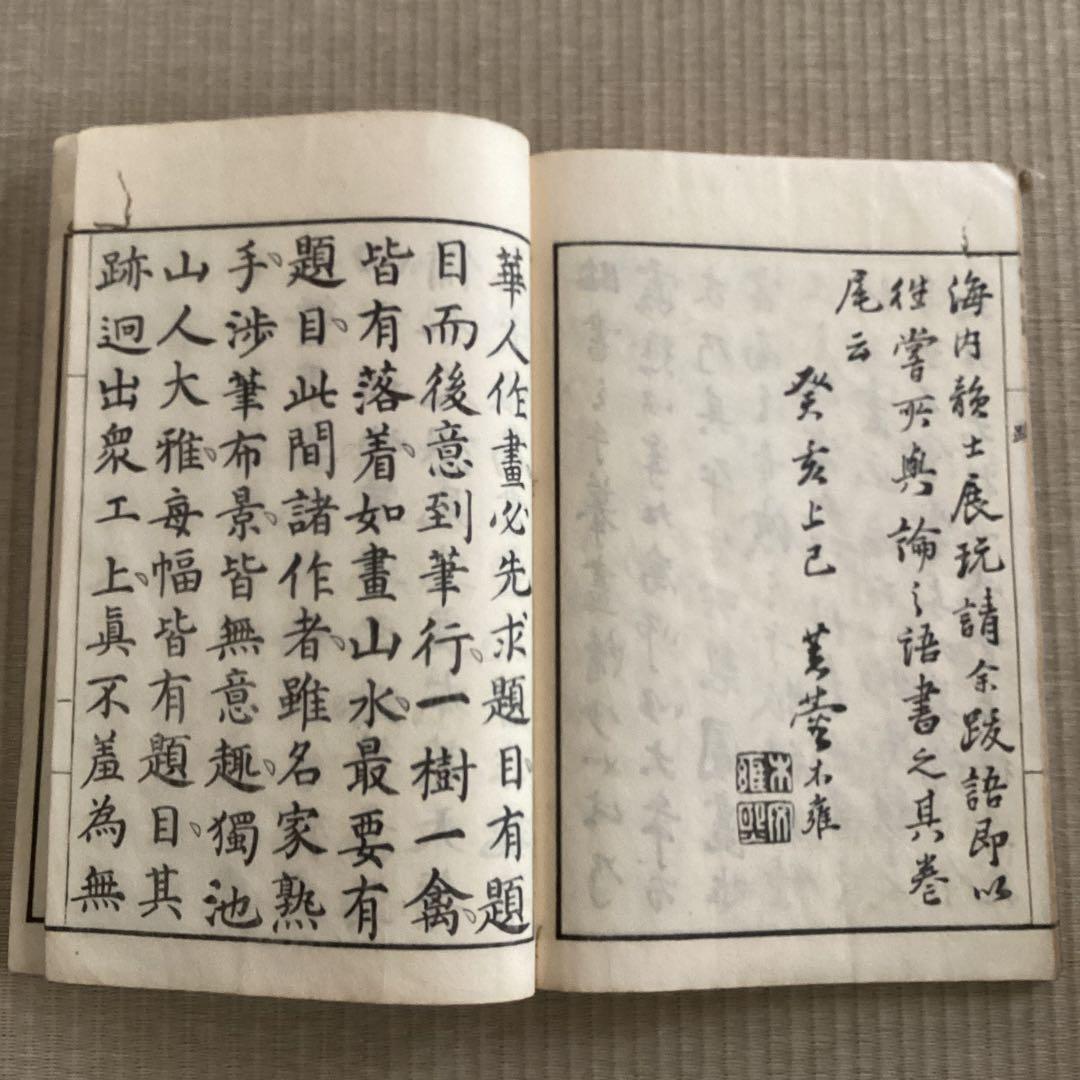 海内韻士展玩請余跋語即以
往嘗所與論之語書之其卷
尾云
癸亥上巳 芙蓉木雍
華人作畫必先求題目。有題
目而後意到筆行。一樹一禽。
皆有落着。如畫山水。最要有
題目。此間諸作者。雖名家熟
手。渉筆布景。皆無意趣。獨池
山人大雅。每幅皆有題目。其
跡迥出衆工上。眞不羞為無